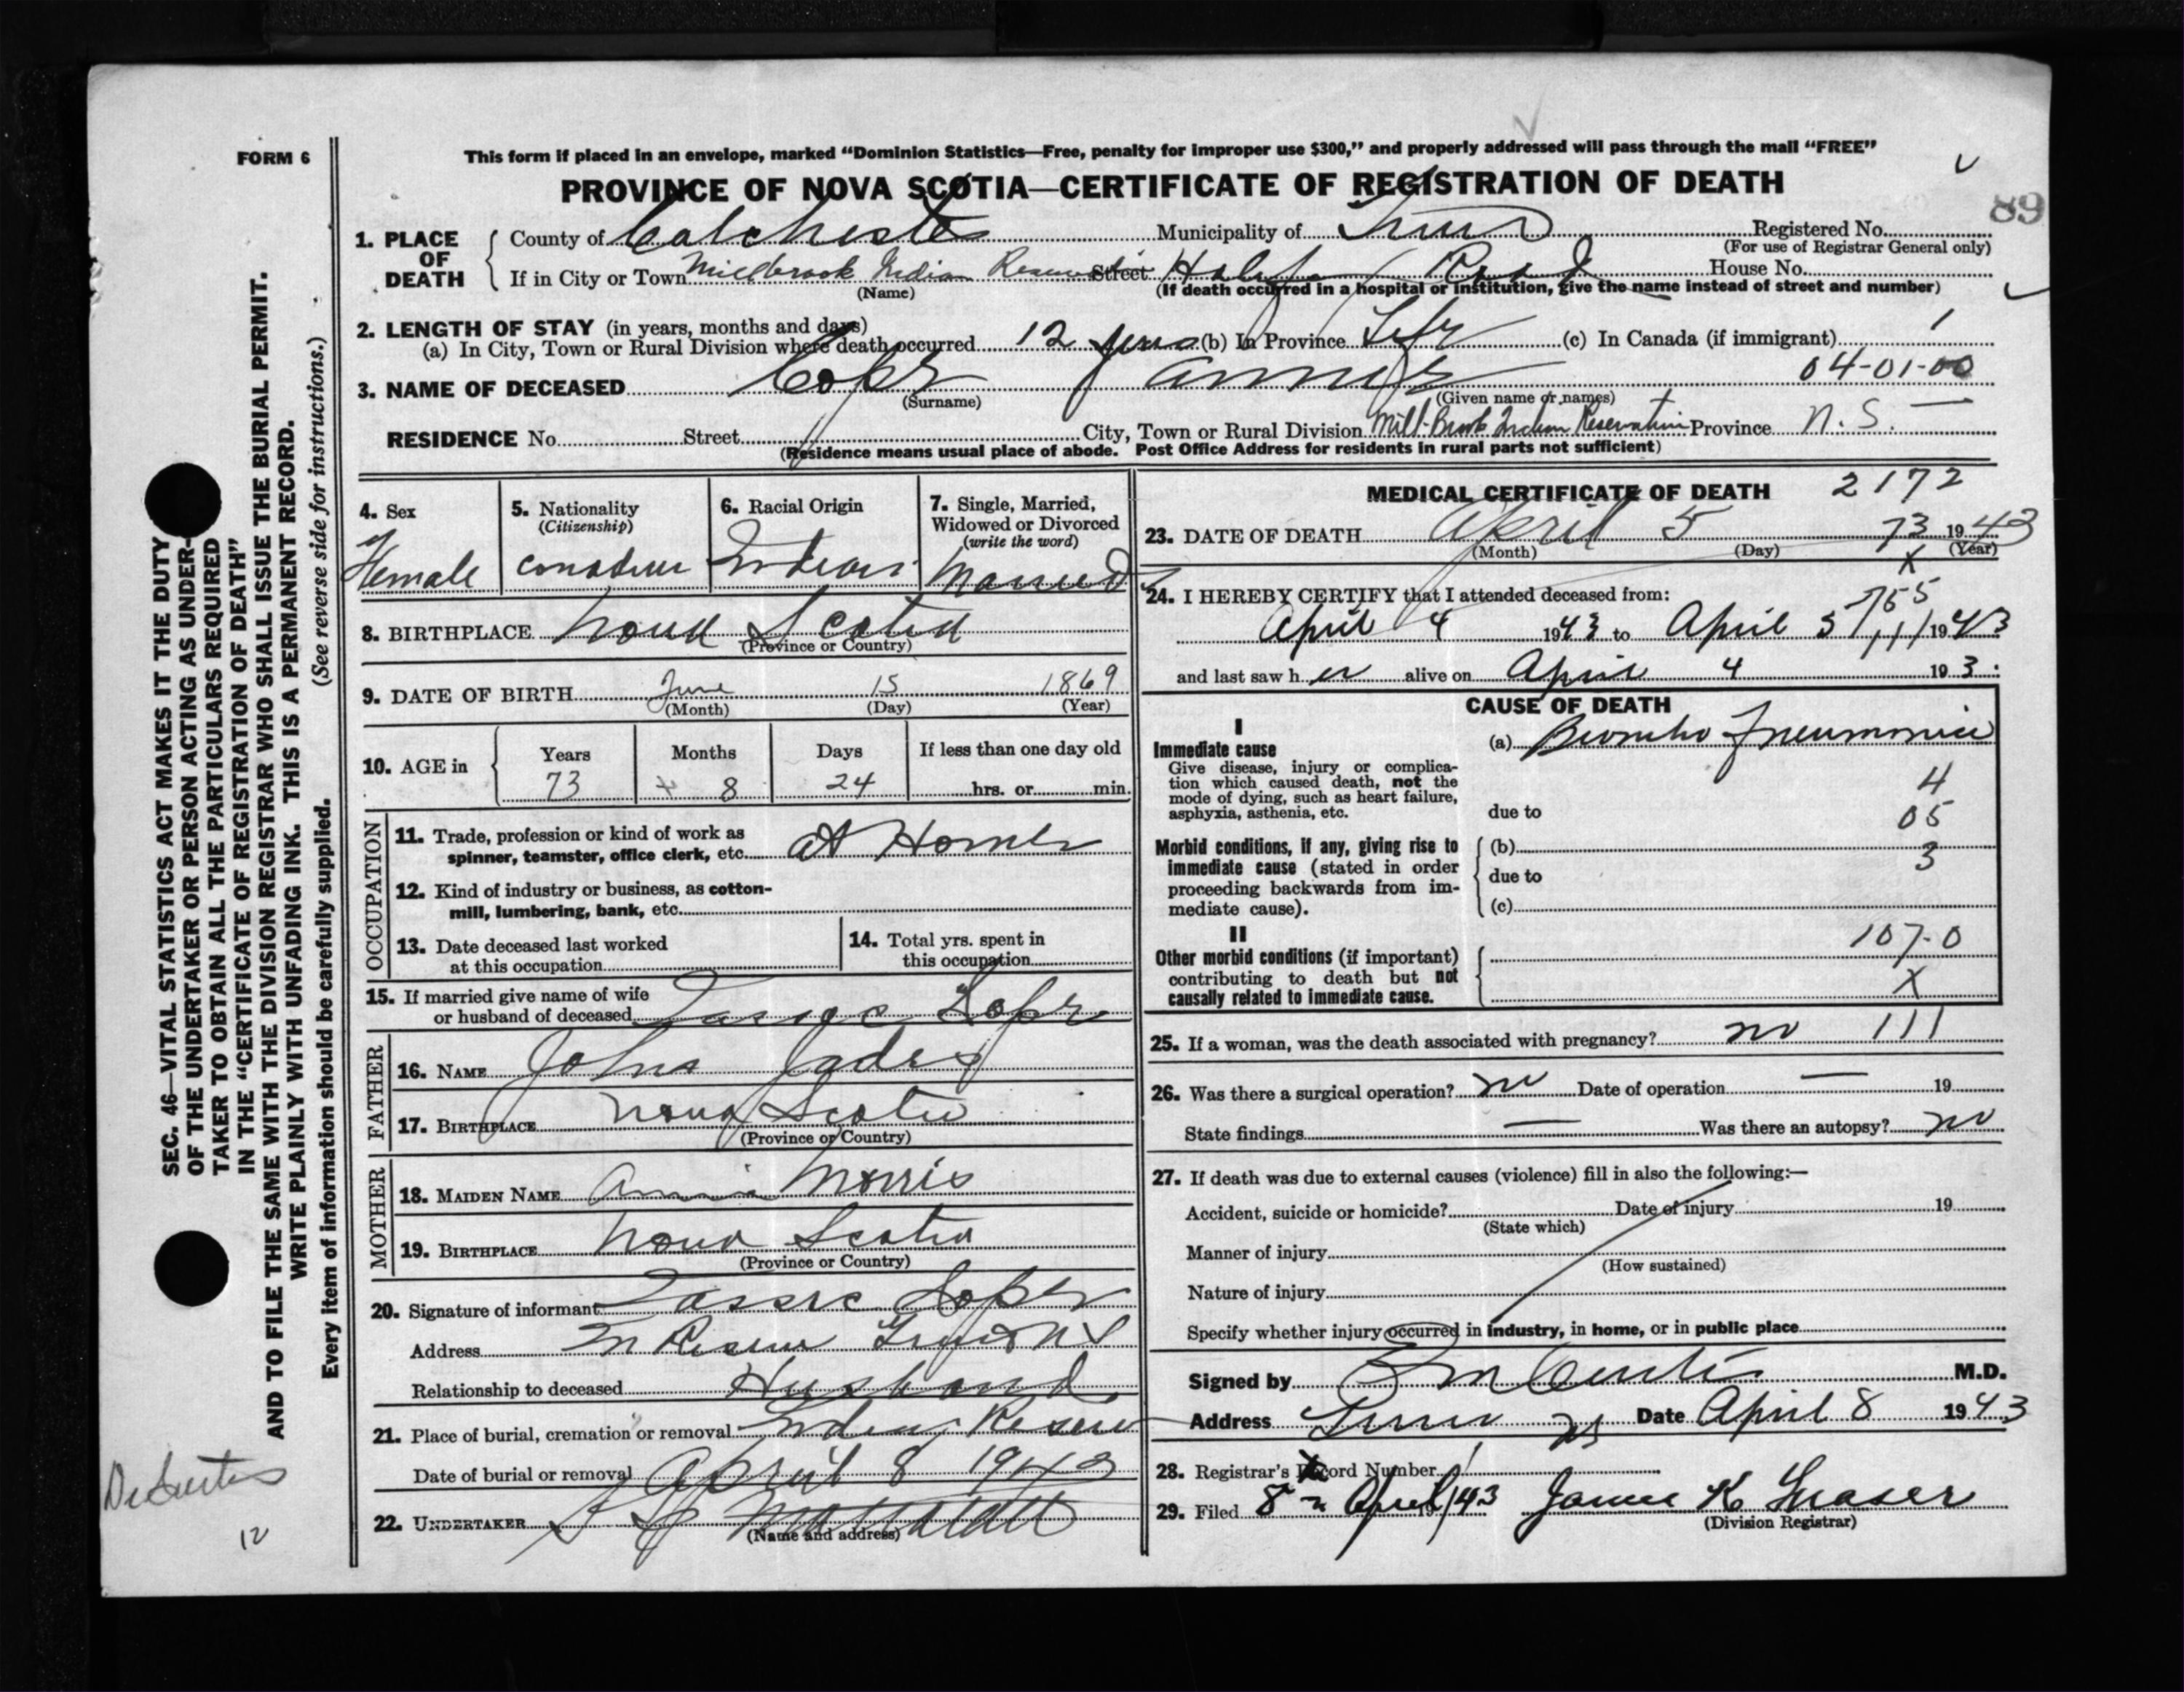 FORM 6
This form if placed in an envelope, marked “Dominion Statistics—Free, penalty for improper use $300,” and properly addressed will pass through the mail “FREE”
PROVINCE OF NOVA SCOTIA—CERTIFICATE OF REGISTRATION OF DEATH
89
1. PLACE OF DEATH
County of Colchester Municipality of Truro Registered No.
(For use of Registrar General only)
If in City or Town Millbrook Indian Reservation Street Halifax Road House No.
(Name) (If death occurred in a hospital or institution, give the name instead of street and number)
2. LENGTH OF STAY (in years, months and days)
(a) In City, Town or Rural Division where death occurred 12 years (b) In Province Life (c) In Canada (if immigrant)
04-01-00
3. NAME OF DECEASED Cope
(Surname) (Given name or names)
RESIDENCE No. Street City, Town or Rural Division Mill-Brook Indian Reservation Province N. S. —
(Residence means usual place of abode. Post Office Address for residents in rural parts not sufficient)
4. Sex Female
5. Nationality (Citizenship) Canadian
6. Racial Origin Indian
7. Single, Married, Widowed or Divorced (write the word) Married
8. BIRTHPLACE Nova Scotia
(Province or Country)
9. DATE OF BIRTH June 15 1869
(Month) (Day) (Year)
10. AGE in Years 73 Months 8 Days 24 If less than one day old hrs. or min.
OCCUPATION
11. Trade, profession or kind of work as spinner, teamster, office clerk, etc. at Home
12. Kind of industry or business, as cotton-mill, lumbering, bank, etc.
13. Date deceased last worked at this occupation
14. Total yrs. spent in this occupation
15. If married give name of wife or husband of deceased Cope
FATHER
16. NAME John
17. BIRTHPLACE Nova Scotia
(Province or Country)
MOTHER
18. MAIDEN NAME Annie Morris
19. BIRTHPLACE Nova Scotia
(Province or Country)
20. Signature of informant Cope
Address Truro N S
Relationship to deceased Husband
21. Place of burial, cremation or removal Indian Reserve
Date of burial or removal April 8 1943
22. UNDERTAKER
(Name and address)
MEDICAL CERTIFICATE OF DEATH 2172
23. DATE OF DEATH April 5 73 1943
(Month) (Day) (Year)
X
24. I HEREBY CERTIFY that I attended deceased from:
755
April 4 1943 to April 5 111 1943
and last saw her alive on April 4 193
CAUSE OF DEATH
I
Immediate cause
Give disease, injury or complication which caused death, not the mode of dying, such as heart failure, asphyxia, asthenia, etc.
(a) Broncho Pneumonia
4
due to 05
Morbid conditions, if any, giving rise to immediate cause (stated in order proceeding backwards from immediate cause).
(b) 3
due to
(c)
II
Other morbid conditions (if important) contributing to death but not causally related to immediate cause.
107-0
X
25. If a woman, was the death associated with pregnancy? no 111
26. Was there a surgical operation? no Date of operation — 19
State findings — Was there an autopsy? no
27. If death was due to external causes (violence) fill in also the following:—
Accident, suicide or homicide? Date of injury 19
(State which)
Manner of injury
(How sustained)
Nature of injury
Specify whether injury occurred in industry, in home, or in public place
Signed by M.D.
Address Truro NS Date April 8 1943
28. Registrar's Record Number
29. Filed 8 April 1943 James K Fraser
(Division Registrar)
SEC. 46—VITAL STATISTICS ACT MAKES IT THE DUTY
OF THE UNDERTAKER OR PERSON ACTING AS UNDER-
TAKER TO OBTAIN ALL THE PARTICULARS REQUIRED
IN THE “CERTIFICATE OF REGISTRATION OF DEATH”
AND TO FILE THE SAME WITH THE DIVISION REGISTRAR WHO SHALL ISSUE THE BURIAL PERMIT.
WRITE PLAINLY WITH UNFADING INK. THIS IS A PERMANENT RECORD.
Every item of information should be carefully supplied. (See reverse side for instructions.)
12